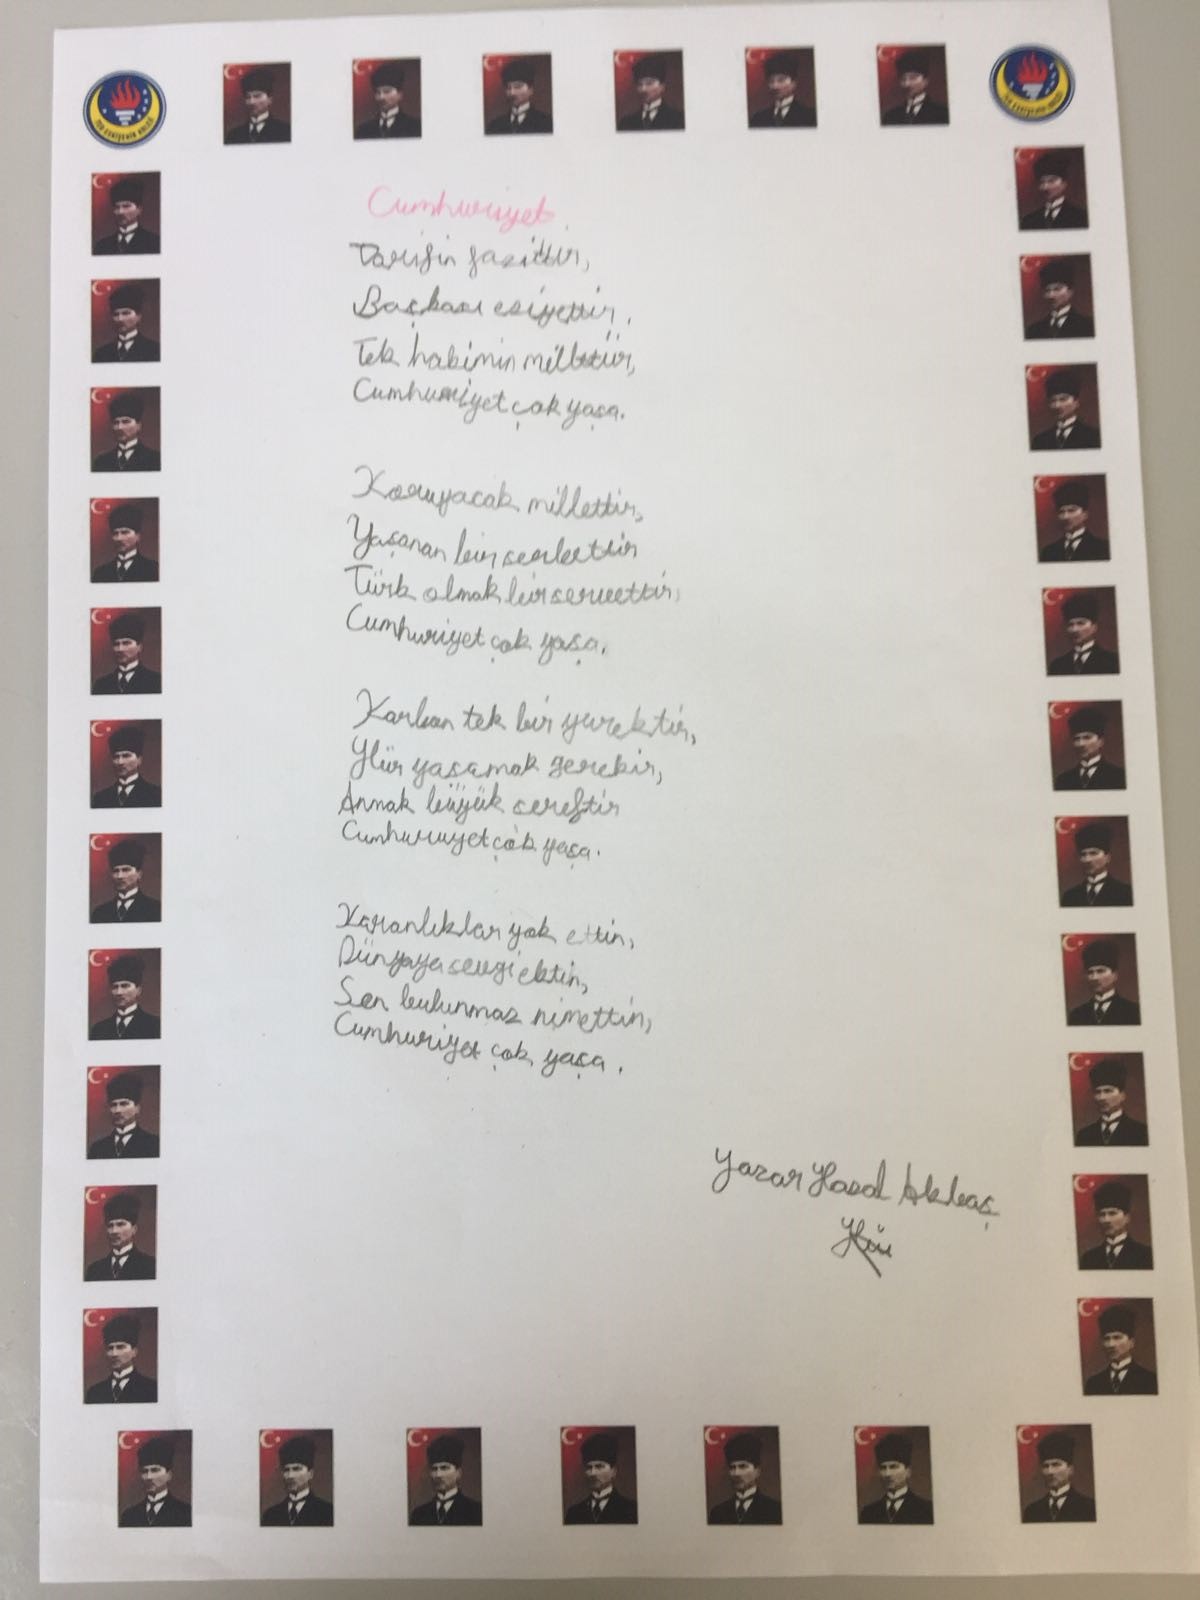 Cumhuriyet
Tarifin fazittir,
Başkası eziyettir,
Tek hakimin millettir,
Cumhuriyet çok yaşa.
Koruyacak millettir,
Yaşanan bir serbettir
Türk olmak bir servettir,
Cumhuriyet çok yaşa.
Karban tek bir yürektir,
Hür yaşamak gerekir,
Anmak büyük şereftir
Cumhuruyet çok yaşa.
Karanlıkları yok ettin,
Dünyaya sevgi ektin,
Sen bulunmaz nimettin,
Cumhuriyet çok yaşa.
Yazar Hasad Akbaş